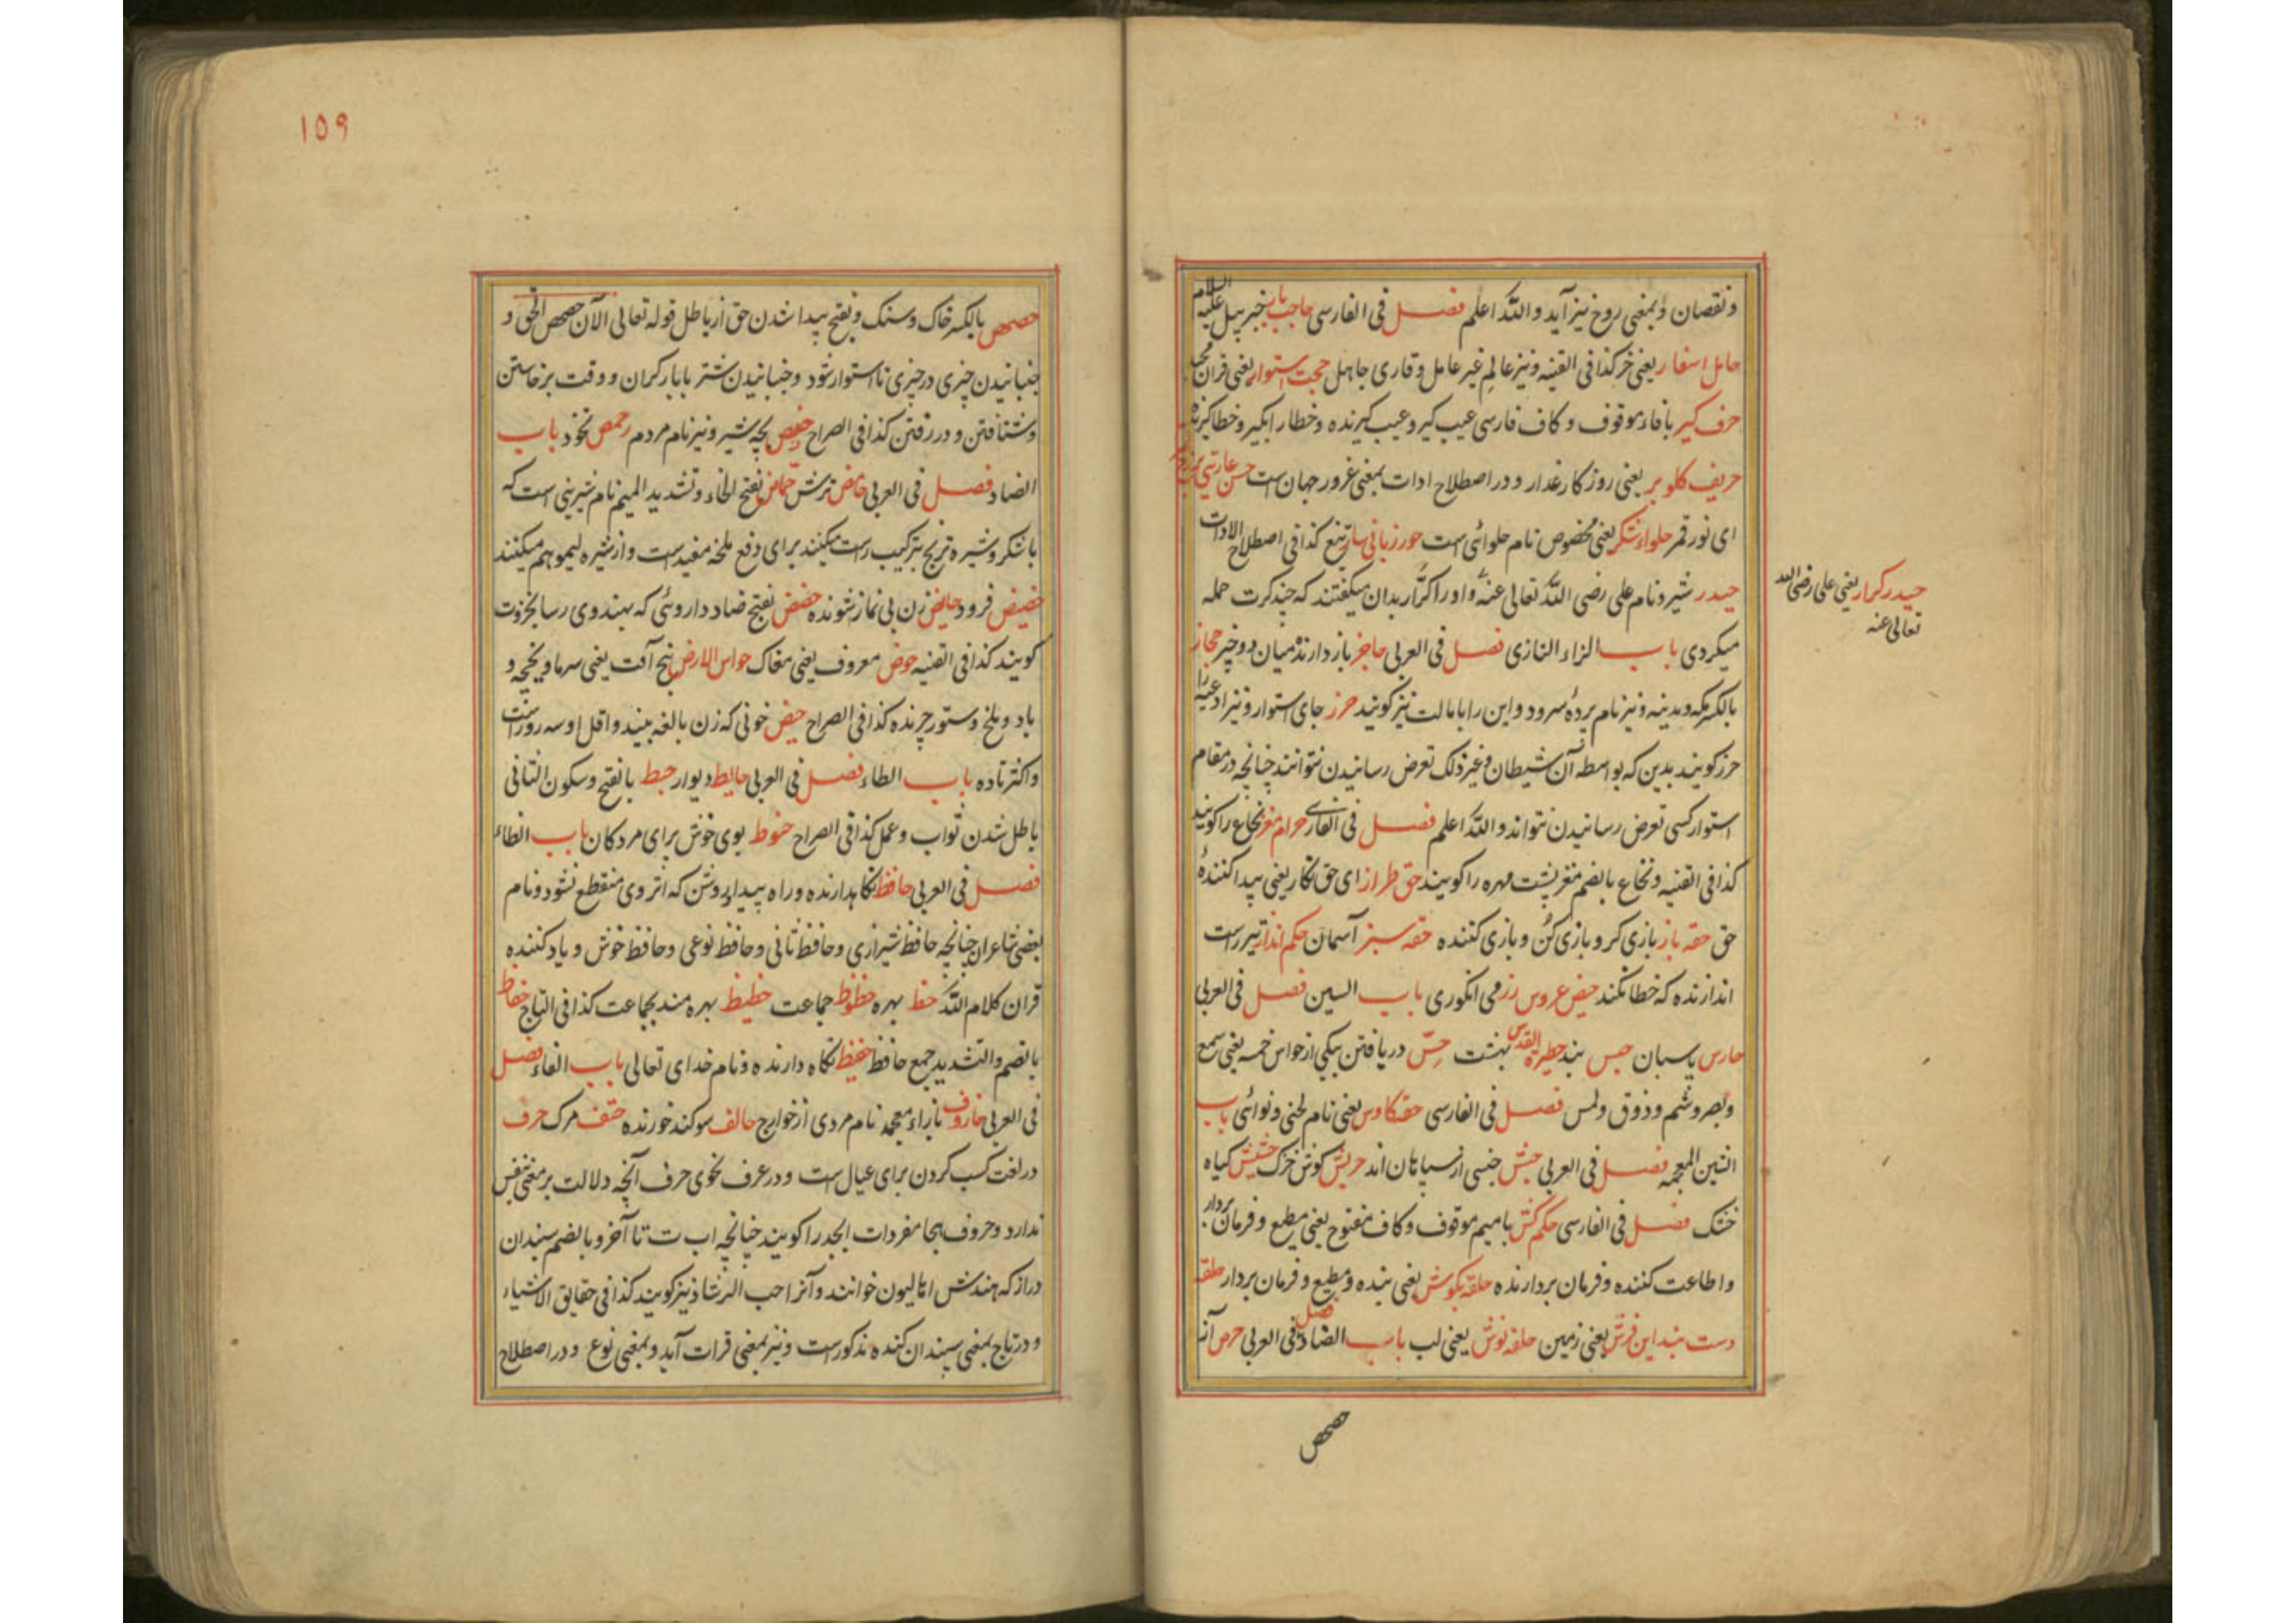 ونقصان وبمعنی روخ نیز آید والله اعلم فصل فی الفارسی حاجب بار جبرییل علیه السلام
حامل اسفار یعنی خر کذا فی القنیه ونیز عالم غیر عامل وقاری جاهل حجت استوار یعنی قران مجید
حرف کیر بافاء موقوف وکاف فارسی عیب کیر وعیب کیرنده وخطا را بکیر وخطا کیرنده
حریف کلو بر یعنی روزکار غدار ودر اصطلاح ادات بمعنی غرور جهان است حسن عاریتی
ای نور قمر حلواء شکر یعنی مخصوص نام حلوائی است حور زبانی سار تیغ کذا فی اصطلاح الادات
حیدر شیر ونام علی رضی الله تعالی عنه واورا کرار بدان میکفتند که چند کرت حمله
حیدر کرار یعنی علی رضی الله
تعالی عنه
میکردی باب الزاء التازی فصل فی العربی حاجز بازدارنده میان دو چیز حجاز
بالکسر مکه ومدینه ونیز نام پرده سرود واین را بامالت نیز کویند حرز جای استوار ونیز ادعیه را
حرز کویند بدین که بواسطه آن شیطان وغیر ذلک تعرض رسانیدن نتوانند چنانچه در مقام
استوار کسی تعرض رسانیدن نتواند والله اعلم فصل فی الفارسی حرام مغز نخاع را کویند
کذا فی القنیه ونخاع بالضم مغز پشت مهره را کویند حق طراز ای حق نکار یعنی پیدا کننده
حق حقه باز بازی کر وبازی کن وبازی کننده حقه سبز آسمان حکم انداز تیر راست
اندازنده که خطا نکند حیض عروس رز می انکوری باب السین فصل فی العربی
حارس پاسبان حبس بند حظیرة القدس بهشت حس دریافتن بیکی از حواس خمسه یعنی سمع
وبصر وشم وذوق ولمس فصل فی الفارسی حقه کاوس یعنی نام لحنی ونوائی باب
الشین المعجمه فصل فی العربی حبش جنسی از سیاهان اند حریش کوش خزک حشیش کیاه
خشک فصل فی الفارسی حکم کش بامیم موقوف وکاف مفتوح یعنی مطیع وفرمان بردار
واطاعت کننده وفرمان بردارنده حلقه بکوش یعنی بنده ومطیع وفرمان بردار حلقه
دست بند این فرش یعنی زمین حلقه نوش یعنی لب باب الصاد فصل فی العربی حرص آز
حصحص
۱۵۹
حصحص بالکسر خاک وسنک وبفتح پیدا شدن حق از باطل قوله تعالی الآن حصحص الحق و
جنبانیدن چیزی در چیزی تا استوار شود وجنبانیدن شتر بابار کران ووقت برخاستن
وشتافتن ودر رفتن کذا فی الصراح حفص بچه شیر ونیز نام مردم حمص نخود باب
الضاد فصل فی العربی حامض ترش حماض بفتح الحاء وتشدید المیم نام شیرینی است که
باشکر وشیره ترنج بترکیب راست میکنند برای دفع ملخه مفید است واز شیره لیمو هم میکنند
حضیض فرود حایض زن بی نماز شونده حضض بفتح ضاد داروئی که بهندوی رسانجوت
کویند کذا فی القنیه حوض معروف یعنی مغاک حواس الارض پنج آفت یعنی سرما ویخچه و
باد وملخ وستور چرنده کذا فی الصراح حیض خونی که زن بالغه بیند واقل او سه روز است
واکثر تا ده باب الطاء فصل فی العربی حایط دیوار حبط بالفتح وسکون الثانی
باطل شدن ثواب وعمل کذا فی الصراح حنوط بوی خوش برای مردکان باب الظاء
فصل فی العربی حافظ نکاهدارنده وراه پیدا وروشن که اثر وی منقطع نشود ونام
بعضی شاعران چنانچه حافظ شیرازی وحافظ ثانی وحافظ نوعی وحافظ خوش ویاد کننده
قران کلام الله حظ بهره حظوظ جماعت حظیظ بهره مند بجماعت کذا فی التاج حفاظ
بالضم والتشدید جمع حافظ حفیظ نکاه دارنده ونام خدای تعالی باب الفاء فصل
فی العربی حازوف بازاء معجمه نام مردی از خوارج حالف سوکند خورنده حتف مرک حرف
در لغت کسب کردن برای عیال است ودر عرف نحوی حرف آنچه دلالت بر معنی بنفس
ندارد وحروف هجا مفردات ابجد را کویند چنانچه اب ت تا آخر وبالضم سپندان
دراز که هندش اتالیون خوانند وآنرا حب الرشاد نیز کویند کذا فی حقایق الاشیاء
ودر تاج بمعنی سپندان کنده مذکور است ونیز بمعنی قرات آید وبمعنی نوع ودر اصطلاح